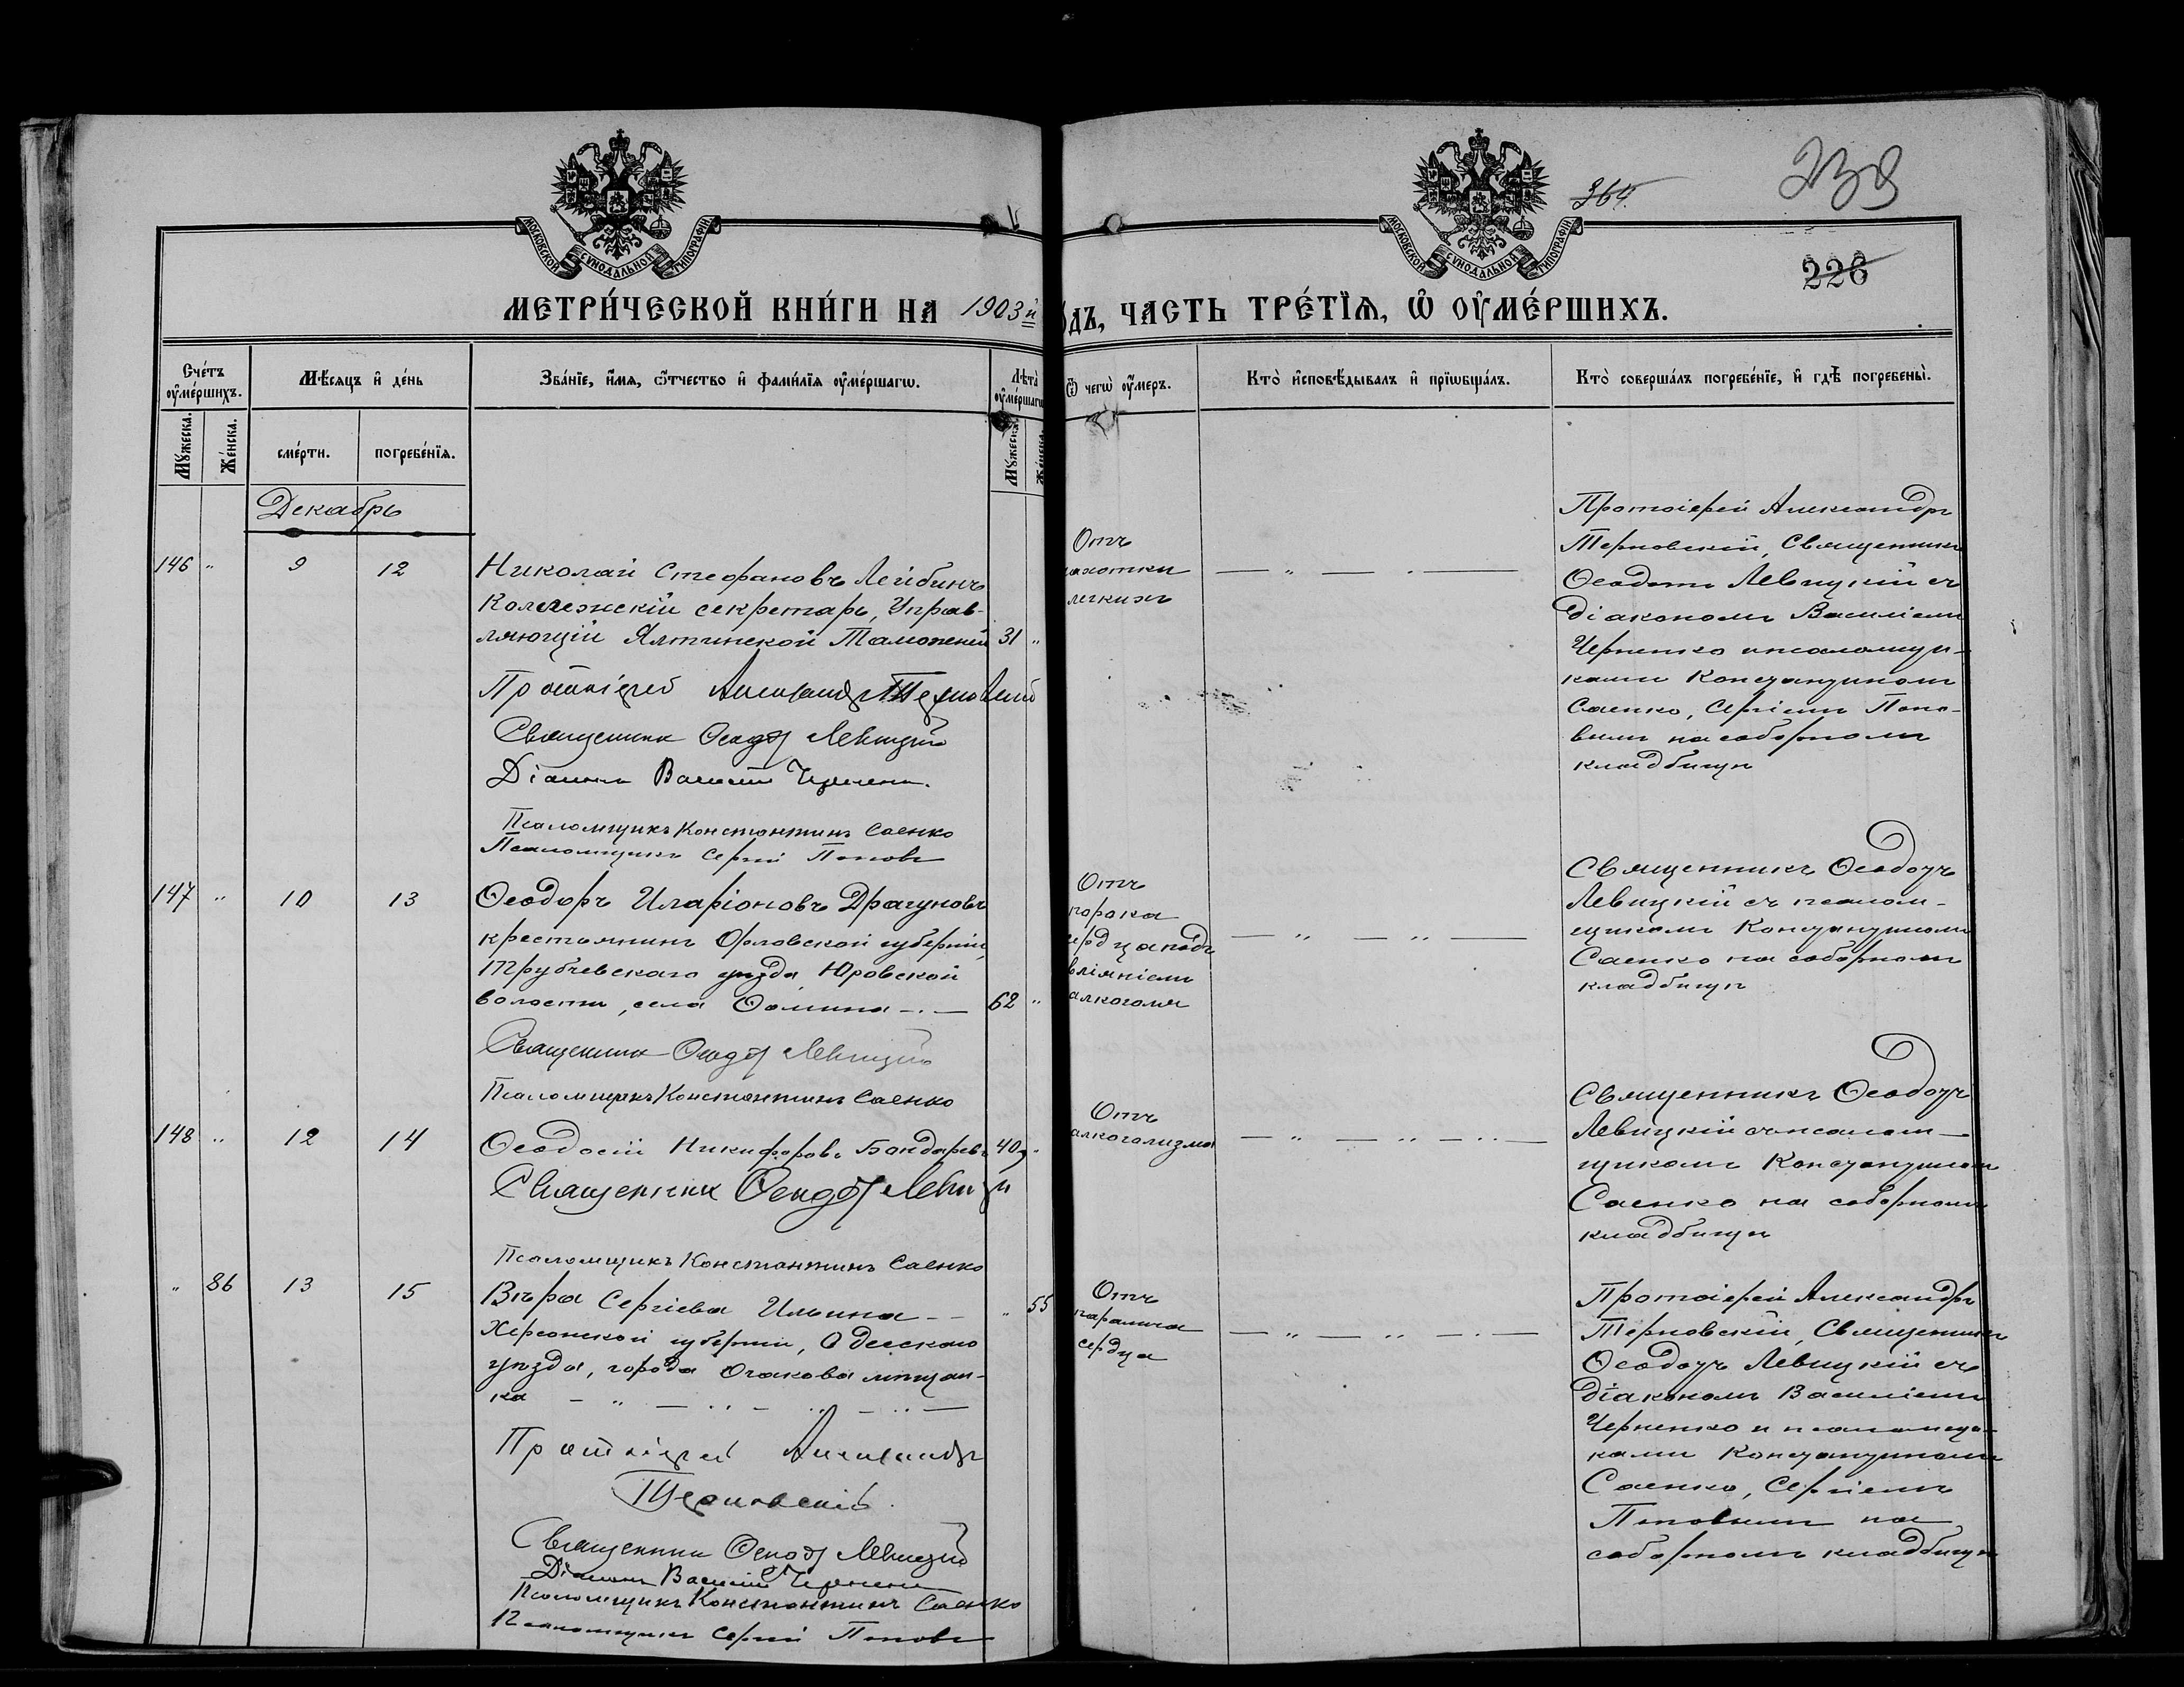 364.
239
226
МОСКОВСКОЙ СѴНОДАЛЬНОЙ ТИПОГРАФІИ
МОСКОВСКОЙ СѴНОДАЛЬНОЙ ТИПОГРАФІИ
МЕТРИ́ЧЕСКОЙ КНИ́ГИ НА 1903й
ДЪ, ЧАСТЬ ТРЕ́ТЇѦ, Ѡ ОУМЕ́РШИХЪ.
Сче́тъ оуме́ршихъ.
Мѣ́сяцъ и де́нь
Зва́нїе, и́мя, ѻ́тчество и фами́лїя оуме́ршагѡ.
Лѣта̀ оуме́ршагѡ
Ѿ чегѡ̀ оу́меръ.
Кто̀ исповѣ́дывалъ и прїѡбща́лъ.
Кто̀ соверша́лъ погребе́нїе, и гдѣ̀ погребены̀.
Му́жеска.
Же́нска.
сме́рти.
погребе́нїя.
Му́жеска.
Же́нска.
Декабрь
146 " 9 12
Николай Стефановъ Лейбинъ
Коллежскій секретарь, Управ-
ляющій Ялтинской Таможней 31 "
Протоіерей Александръ Терновскій
Священникъ Ѳеодотъ Левицкій
Діаконъ Василій Черненко.
Псаломщикъ Константинъ Саенко
Псаломщикъ Сергій Поповъ
Отъ
чахотки
легкихъ
Протоіерей Александръ
Терновскій, Священникъ
Ѳеодотъ Левицкій съ
діакономъ Василіемъ
Черненко и псаломщи-
ками Константиномъ
Саенко, Сергіемъ Попо-
вымъ на соборномъ
кладбищѣ
147 " 10 13
Ѳеодоръ Иларіоновъ Драгуновъ
крестьянинъ Орловской губерніи,
Трубчевскаго уѣзда, Юровской
волости, села Ѳомина 62 "
Священникъ Ѳеодотъ Левицкій
Псаломщикъ Константинъ Саенко
Отъ
порока
сердца подъ
вліяніемъ
алкоголя
Священникъ Ѳеодотъ
Левицкій съ псалом-
щикомъ Константиномъ
Саенко на соборномъ
кладбищѣ
148 " 12 14
Ѳеодосій Никифоровъ Бондаревъ 40 "
Священникъ Ѳеодотъ Левицкій
Псаломщикъ Константинъ Саенко
Отъ
алкоголизма
Священникъ Ѳеодотъ
Левицкій съ псалом-
щикомъ Константиномъ
Саенко на соборномъ
кладбищѣ
" 86 13 15
Вѣра Сергіева Ильина " 55
Херсонской губерніи, Одесскаго
уѣзда, города Очакова мѣщан-
ка
Протоіерей Александръ
Терновскій.
Священникъ Ѳеодотъ Левицкій
Діаконъ Василій Черненко
Псаломщикъ Константинъ Саенко
Псаломщикъ Сергій Поповъ
Отъ
паралича
сердца
Протоіерей Александръ
Терновскій, Священникъ
Ѳеодотъ Левицкій съ
діакономъ Василіемъ
Черненко и псаломщи-
ками Константиномъ
Саенко, Сергіемъ
Поповымъ на
соборномъ кладбищѣ